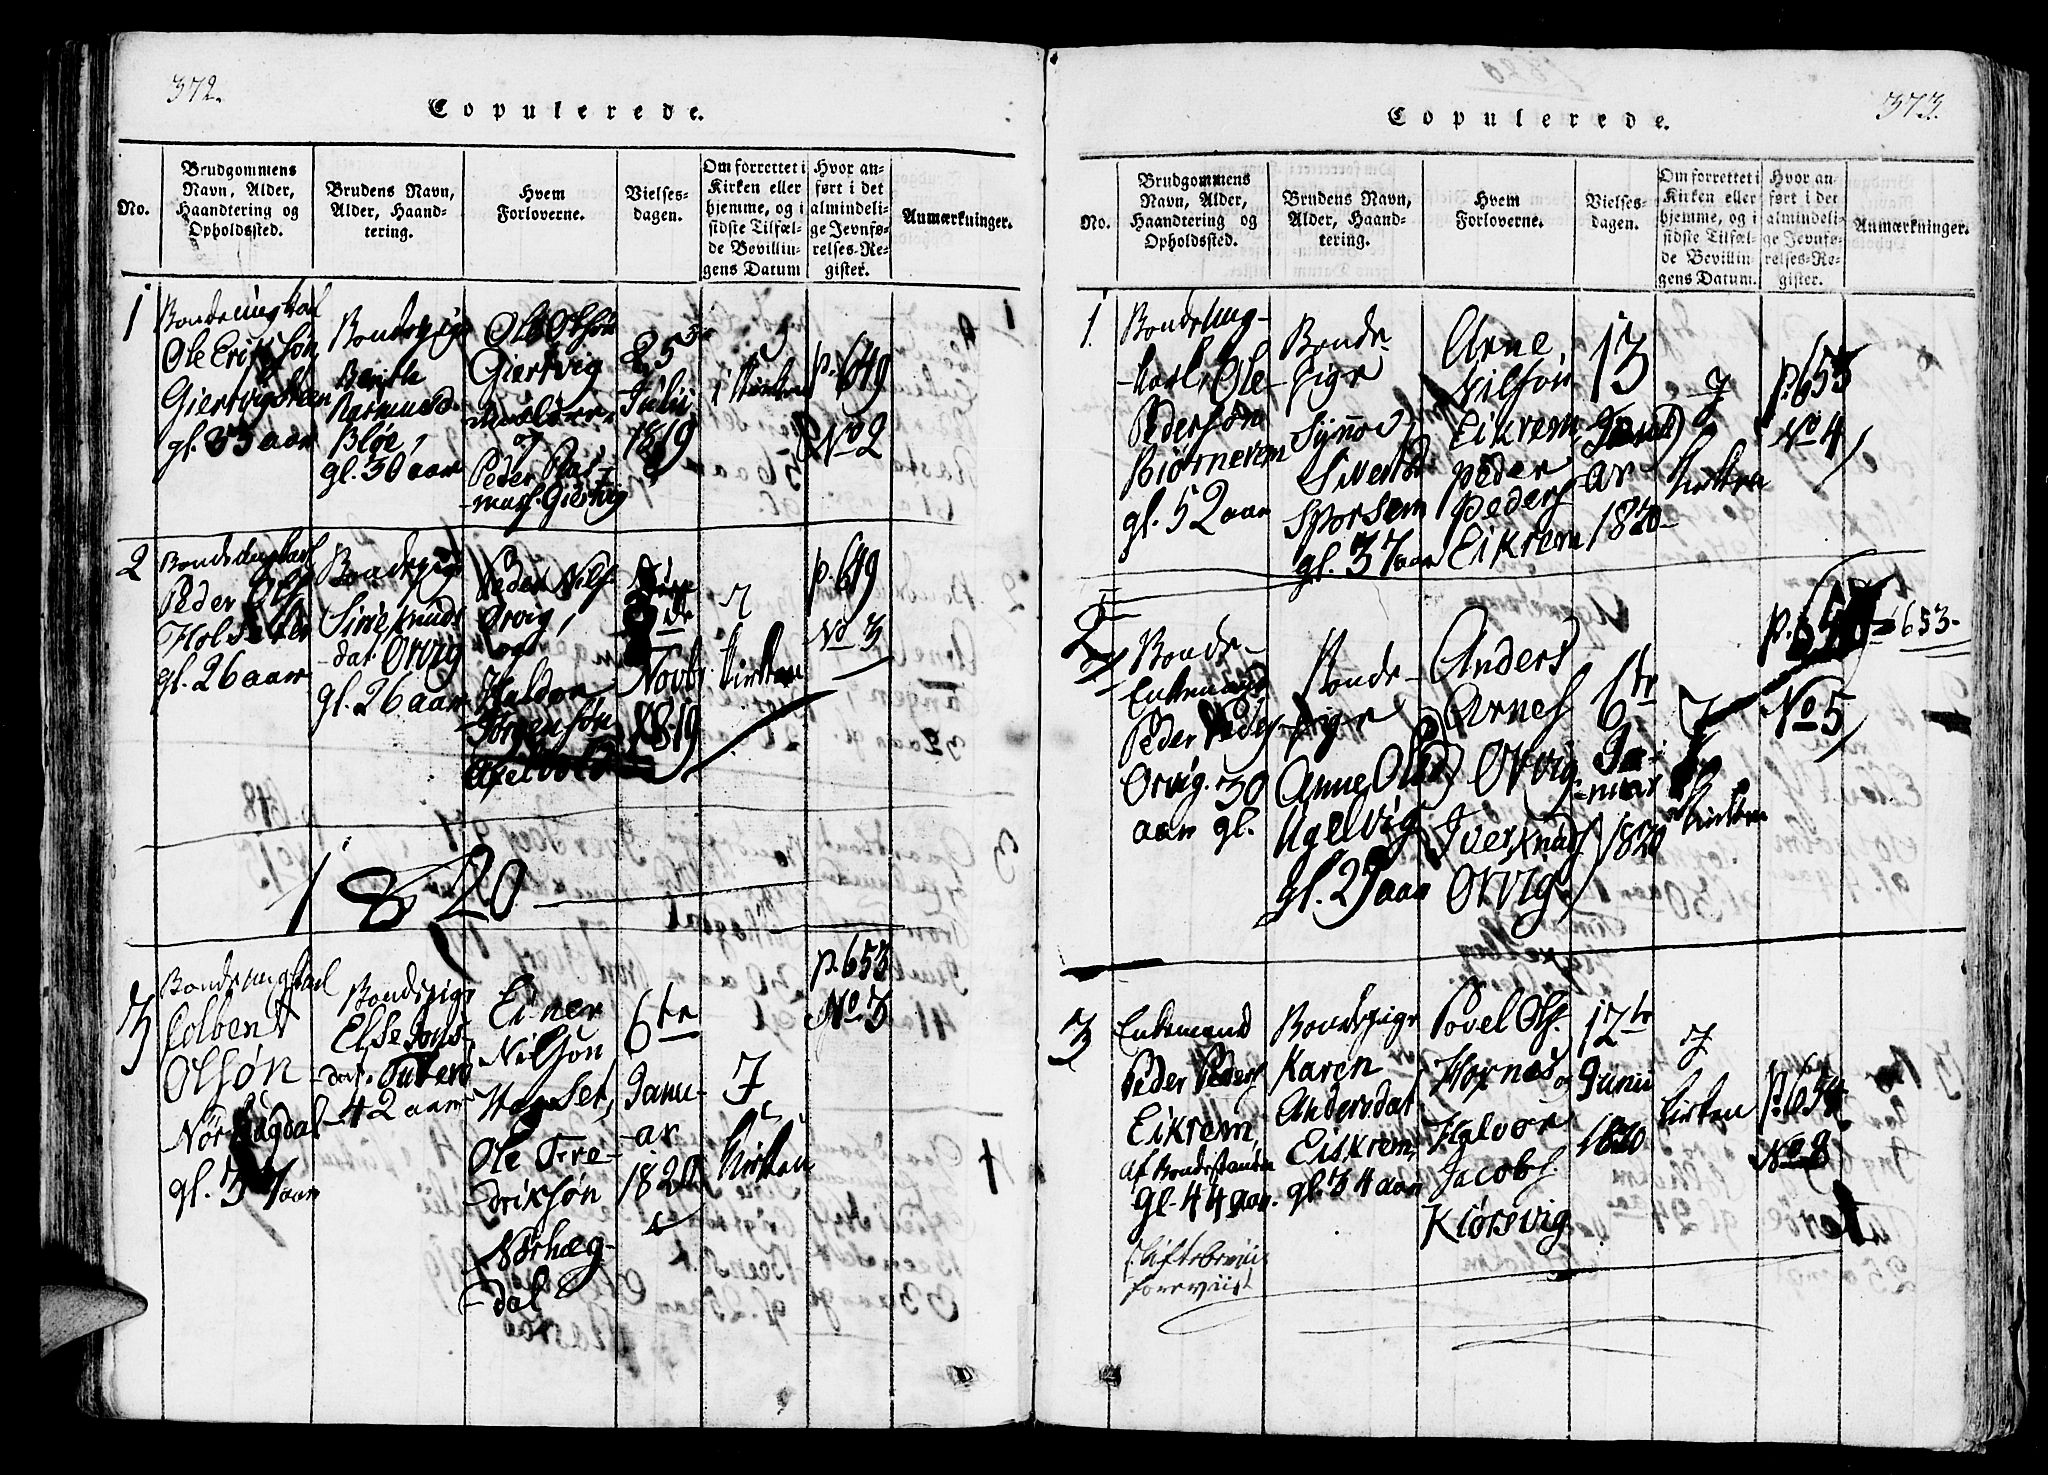 372.
Copulerede.
No.
Brudgommens
Navn, Alder,
Haandtering og
Opholdssted.
Brudens Navn,
Alder, Haand-
tering.
Hvem
Forloverne.
Vielses-
dagen.
Om forrettet i
Kirken eller
hjemme, og i
sidste Tilfæl-
de Bevillin-
gens Datum
Hvor an-
ført i det
almindeli-
ge Jevnfø-
relses-Re-
gister.
Anmærkninger.
1
Bondeungkarl
Ole Erikssøn
Giertvigsteen
gl. 33 aar
Bondepige
Berithe
Rasmusd.
Bløe,
gl. 30 aar
Ole Olssøn
Giertvig
og
Peder Ras-
mus. Giertvig
25de
Julii
1819
i Kirken
p. 649
No 2
2
Bondeungkarl
Peder
gl. 26 aar
Bondepige
Siri Knuds
-dat. Orvig
gl. 26 aar
Peder Nils.
Orvig,
og
Haldor
Jørgensøn
Novb.
1819
I
Kirken
p. 649
No 3
1820
3
Bondeungkarl
Colbent
Olssøn
gl. 37 aar
Bondepige
Else Jons-
dat.
42 aar
Einer
Nilsøn
Ole Fre-
driksøn
Nørhæg-
dal
6te
Janu-
ar
1820
I
Kirken
p. 653
No 3
373.
Copulerede.
No.
Brudgommens
Navn, Alder,
Haandtering og
Opholdssted.
Brudens Navn,
Alder, Haand-
tering.
Hvem
Forloverne.
Vielses-
dagen.
Om forrettet i
Kirken eller
hjemme, og i
sidste Tilfæl-
de Bevillin-
gens Datum.
Hvor an-
ført i det
almindeli-
ge Jevnfø-
relses-Re-
gister.
Anmærkninger.
1.
Bondeung-
-karl Ole
Pedersøn
Biørnerem
gl. 52 aar
Bonde-
pige
Synnov
Sivertsd.
Sporsem
gl. 37 aar
Arne
Nilsøn
Eikrem
Peder
Peders.
Eikrem
13
Janu
ar
1820
I
Kirken
p. 653
No 4
2
Bonde-
Enkemand
Peder Peders.
Orvig. 30
aar gl.
Bonde-
pige
Anne Olsd.
Ugelvig
gl. 29 aar
Anders
Arnes.
Orvig
Iver Knuds.
Orvig
6te
Ja-
-nuar
1820
I
Kirken
653
No 5
3
Enkemand
Peder Peders.
Eikrem,
af Bondestanden
gl. 44 aar.
Skiftebeviis
foreviist
Bondepige
Karen
Andersdat
Eiskrem,
gl. 34 aar
Povel Ols.
Hornes og
Halvor
Jacobs.
Kiørsvig
12te
Junii
1820
I
Kirken
p. 654
No 8